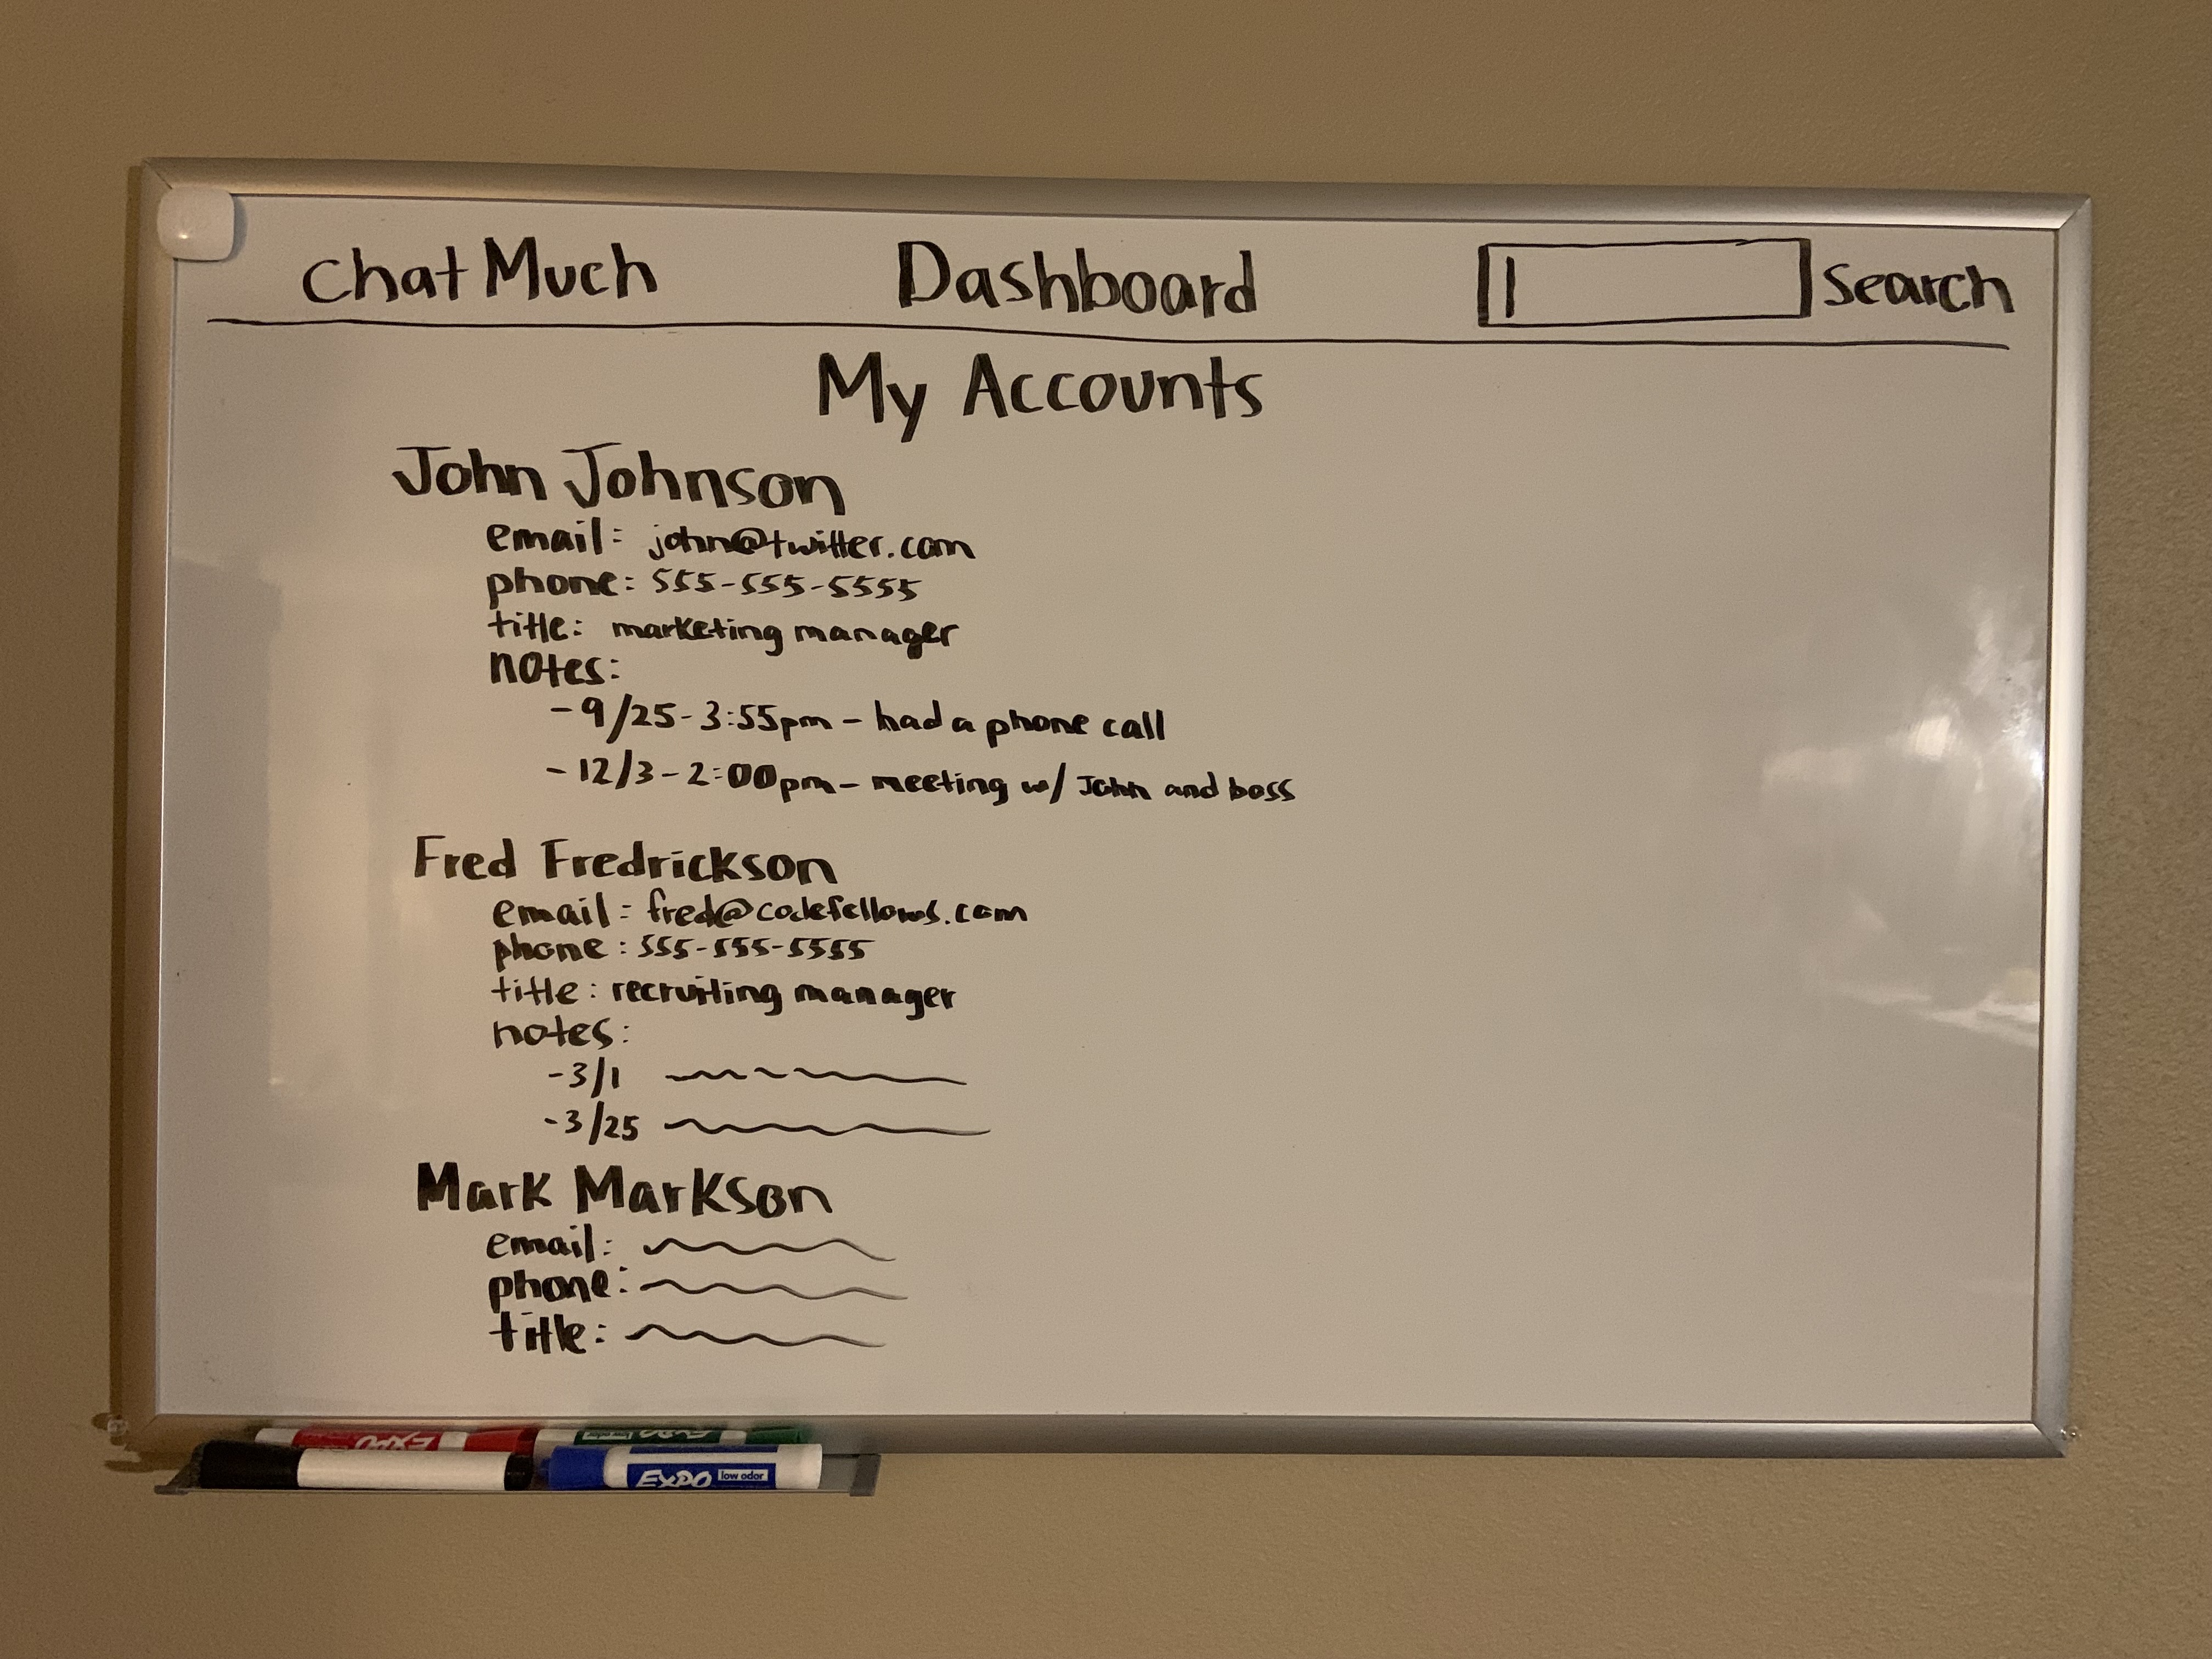 Chat Much Dashboard Search
My Accounts
John Johnson
email: john@twitter.com
phone: 555-555-5555
title: marketing manager
notes:
- 9/25 - 3:55pm - had a phone call
- 12/3 - 2:00pm - meeting w/ John and boss
Fred Fredrickson
email: fred@codefellows.com
phone: 555-555-5555
title: recruiting manager
notes:
- 3/1
- 3/25
Mark Markson
email:
phone:
title:
EXPO low odor EXPO
EXPO low odor